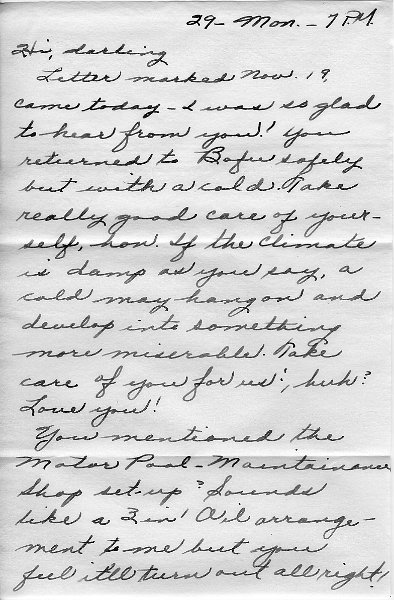 29 - Mon. - 7 P.M.
Hi, darling
Letter marked Nov. 19,
came today - I was so glad
to hear from you! You
returned to Bofu safely
but with a cold. Take
really good care of your-
self, hon. If the climate
is damp as you say, a
cold may hang on and
develop into something
more miserable. Take
care of you for us!, huh?
Love you!
You mentioned the
Motor Pool - Maintainance
Shop set-up? Sounds
like a 3 in 1 Oil arrange-
ment to me but you
feel it'll turn out all right!